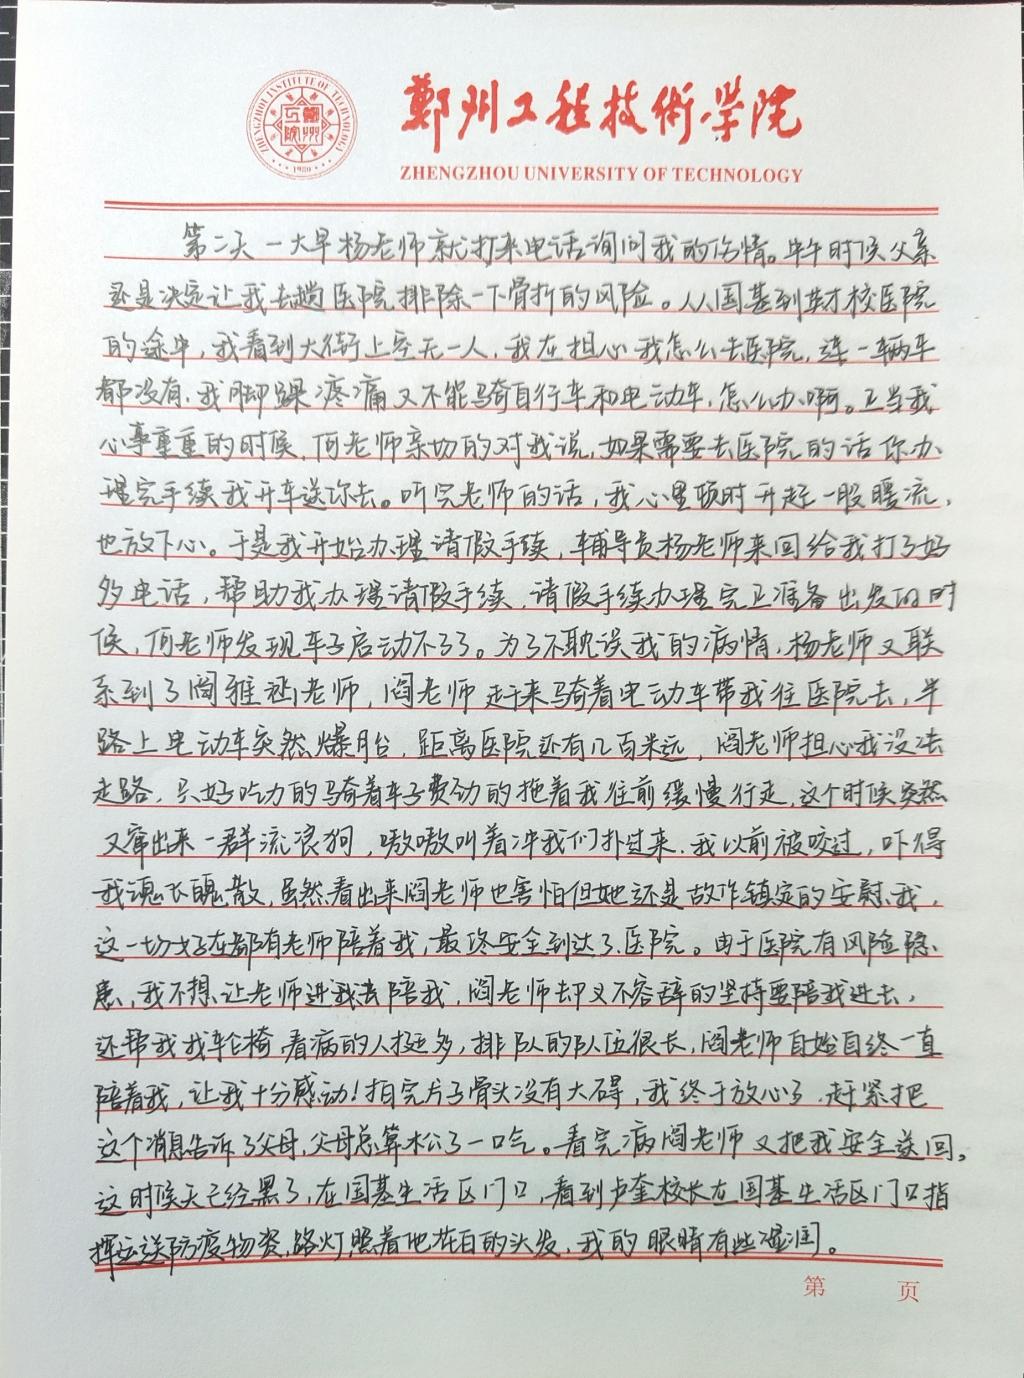 ZHENGZHOU INSTITUTE OF TECHNOLOGY
1980
鄭州工程技術學院
ZHENGZHOU UNIVERSITY OF TECHNOLOGY
第二天一大早杨老师就打来电话询问我的伤情。中午时候父亲
还是决定让我去趟医院排除一下骨折的风险。从国基到英才校医院
的途中，我看到大街上空无一人，我在担心我怎么去医院，连一辆车
都没有，我脚踝疼痛又不能骑自行车和电动车，怎么办啊。正当我
心事重重的时候，何老师亲切的对我说，如果需要去医院的话你办
理完手续我开车送你去。听完老师的话，我心里顿时升起一股暖流，
也放下心。于是我开始办理请假手续，辅导员杨老师来回给我打了好
多电话，帮助我办理请假手续，请假手续办理完正准备出发的时
候，何老师发现车子启动不了了。为了不耽误我的病情，杨老师又联
系到了阎雅老师，阎老师赶来骑着电动车带我往医院去，半
路上电动车突然爆胎，距离医院还有几百米远，阎老师担心我没法
走路，只好吃力的骑着车子费劲的拖着我往前缓慢行走，这个时候突然
又窜出来一群流浪狗，嗷嗷叫着冲我们扑过来，我以前被咬过，吓得
我魂飞魄散，虽然看出来阎老师也害怕但她还是故作镇定的安慰我，
这一切好在都有老师陪着我，最终安全到达了医院。由于医院有风险隐
患，我不想让老师进去陪我，阎老师却义不容辞的坚持要陪我进去，
还帮我找轮椅，看病的人挺多，排队的队伍很长，阎老师自始自终一直
陪着我，让我十分感动！拍完片子骨头没有大碍，我终于放心了，赶紧把
这个消息告诉了父母，父母总算松了一口气。看完病阎老师又把我安全送回，
这时候天已经黑了，在国基生活区门口，看到卢奎校长在国基生活区门口指
挥运送防疫物资，路灯照着他花白的头发，我的眼睛有些湿润。
第 页